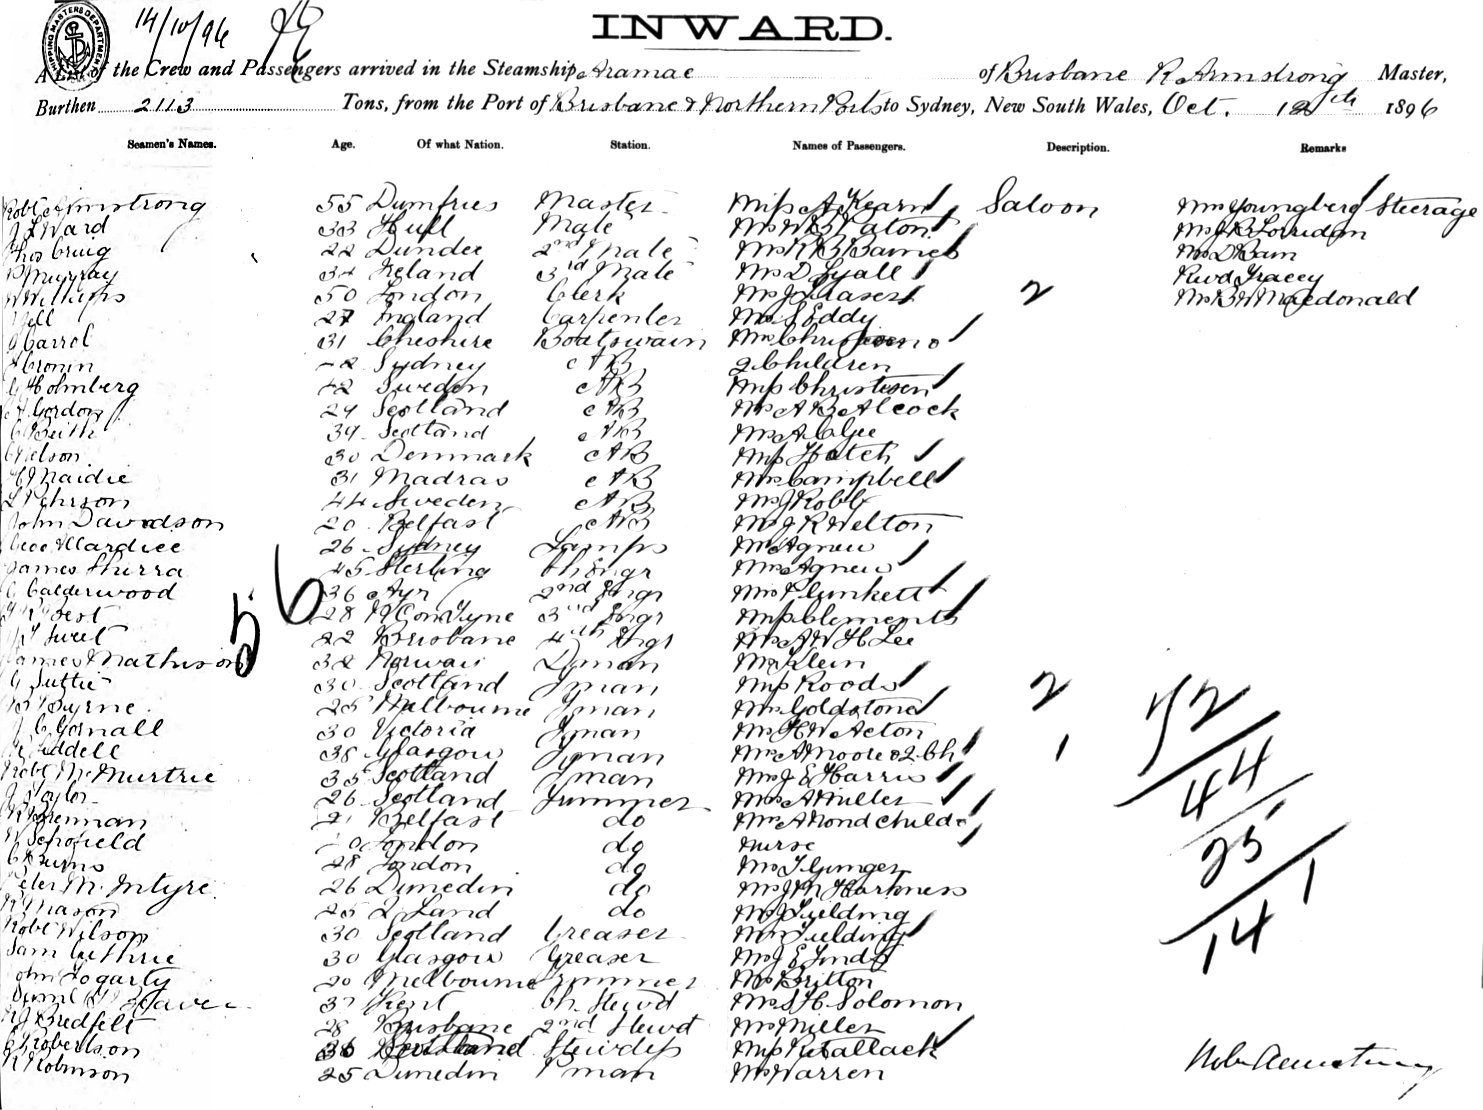 SHIPPING MASTERS DEPARTMENT
14/10/96
INWARD.
A List of the Crew and Passengers arrived in the Steamship Aramac of Brisbane R Armstrong Master,
Burthen 2113 Tons, from the Port of Brisbane & Northern Ports to Sydney, New South Wales, Oct. 12th 1896
Seamen's Names. Age. Of what Nation. Station. Names of Passengers. Description. Remarks
Robt Armstrong 55 Dumfries Master Miss A Kearn Saloon Mrs Youngberg Steerage
Ward 33 Hull Mate Mr W B Paton
Thos Craig 22 Dundee 2nd Mate Mr R B Barnes Mr D Bain
P Murray 34 Ireland 3rd Mate Mr D Lyall Revd Tracey
W Williams 50 London Clerk 2 Mr B W Macdonald
27 England Carpenter Mr S Eddy
J Carrol 31 Cheshire Boatswain
Cronin Sydney AB 2 Children
C Holmberg 42 Sweden AB Miss Christesen
Gordon 24 Scotland AB Mr A B Alcock
C Beith 39 Scotland AB Mr A C Gee
Nelson 30 Denmark AB Miss Hatch
H Maidie 31 Madras AB Mrs Campbell
L Pehrson 44 Sweden AB Mr J Robb
John Davidson 20 Belfast AB Mr J R Welton
Geo Wardice 26 Sydney Lamps Mr Agnew
James Shirra 45 Sterling Ch Engr Mrs Agnew
C Calderwood 36 Ayr 2nd Engr Mrs Plunkett
28 N C on Tyne 3rd Engr Miss Clements
56
Sweet 22 Brisbane 4th Engr Mr A W H Lee
James Mathison 32 Norway Dman Mr Klein
G Suttie 30 Scotland Fman Miss Roods 2
Byrne 25 Melbourne Fman Mrs Goldstone 72
J C Gornall 30 Victoria Fman Mr H W Acton
Liddell 38 Glasgow Fman Mrs A Moore & 2 Ch 1
Robt McMurtrie 35 Scotland Fman Mrs J E Harris 44
J Taylor 26 Scotland Trimmer Mrs A Miller
Brennan 21 Belfast do Mrs A Bond child &
W Schofield London do nurse 25
C Burns 28 London do Mr T Ginger
Peter McIntyre 26 Dunedin do Mr J M Harkness 1
R Mason 25 Z Land do Mr J Fielding
Robt Wilson 30 Scotland Greaser Mrs Fielding 14
Sam Guthrie 30 Glasgow Greaser Mr J E Lindo
John Fogarty 20 Melbourne Trimmer Mr Britton
37 Kent Ch. Stewd Mr S H Solomon
Bredfelt 28 Brisbane 2nd Stewd Mr Miller
Robertson 36 Scotland Stewdess Miss Retallack
R Robinson 25 Dunedin Pman Mr Warren
Robt Armstrong